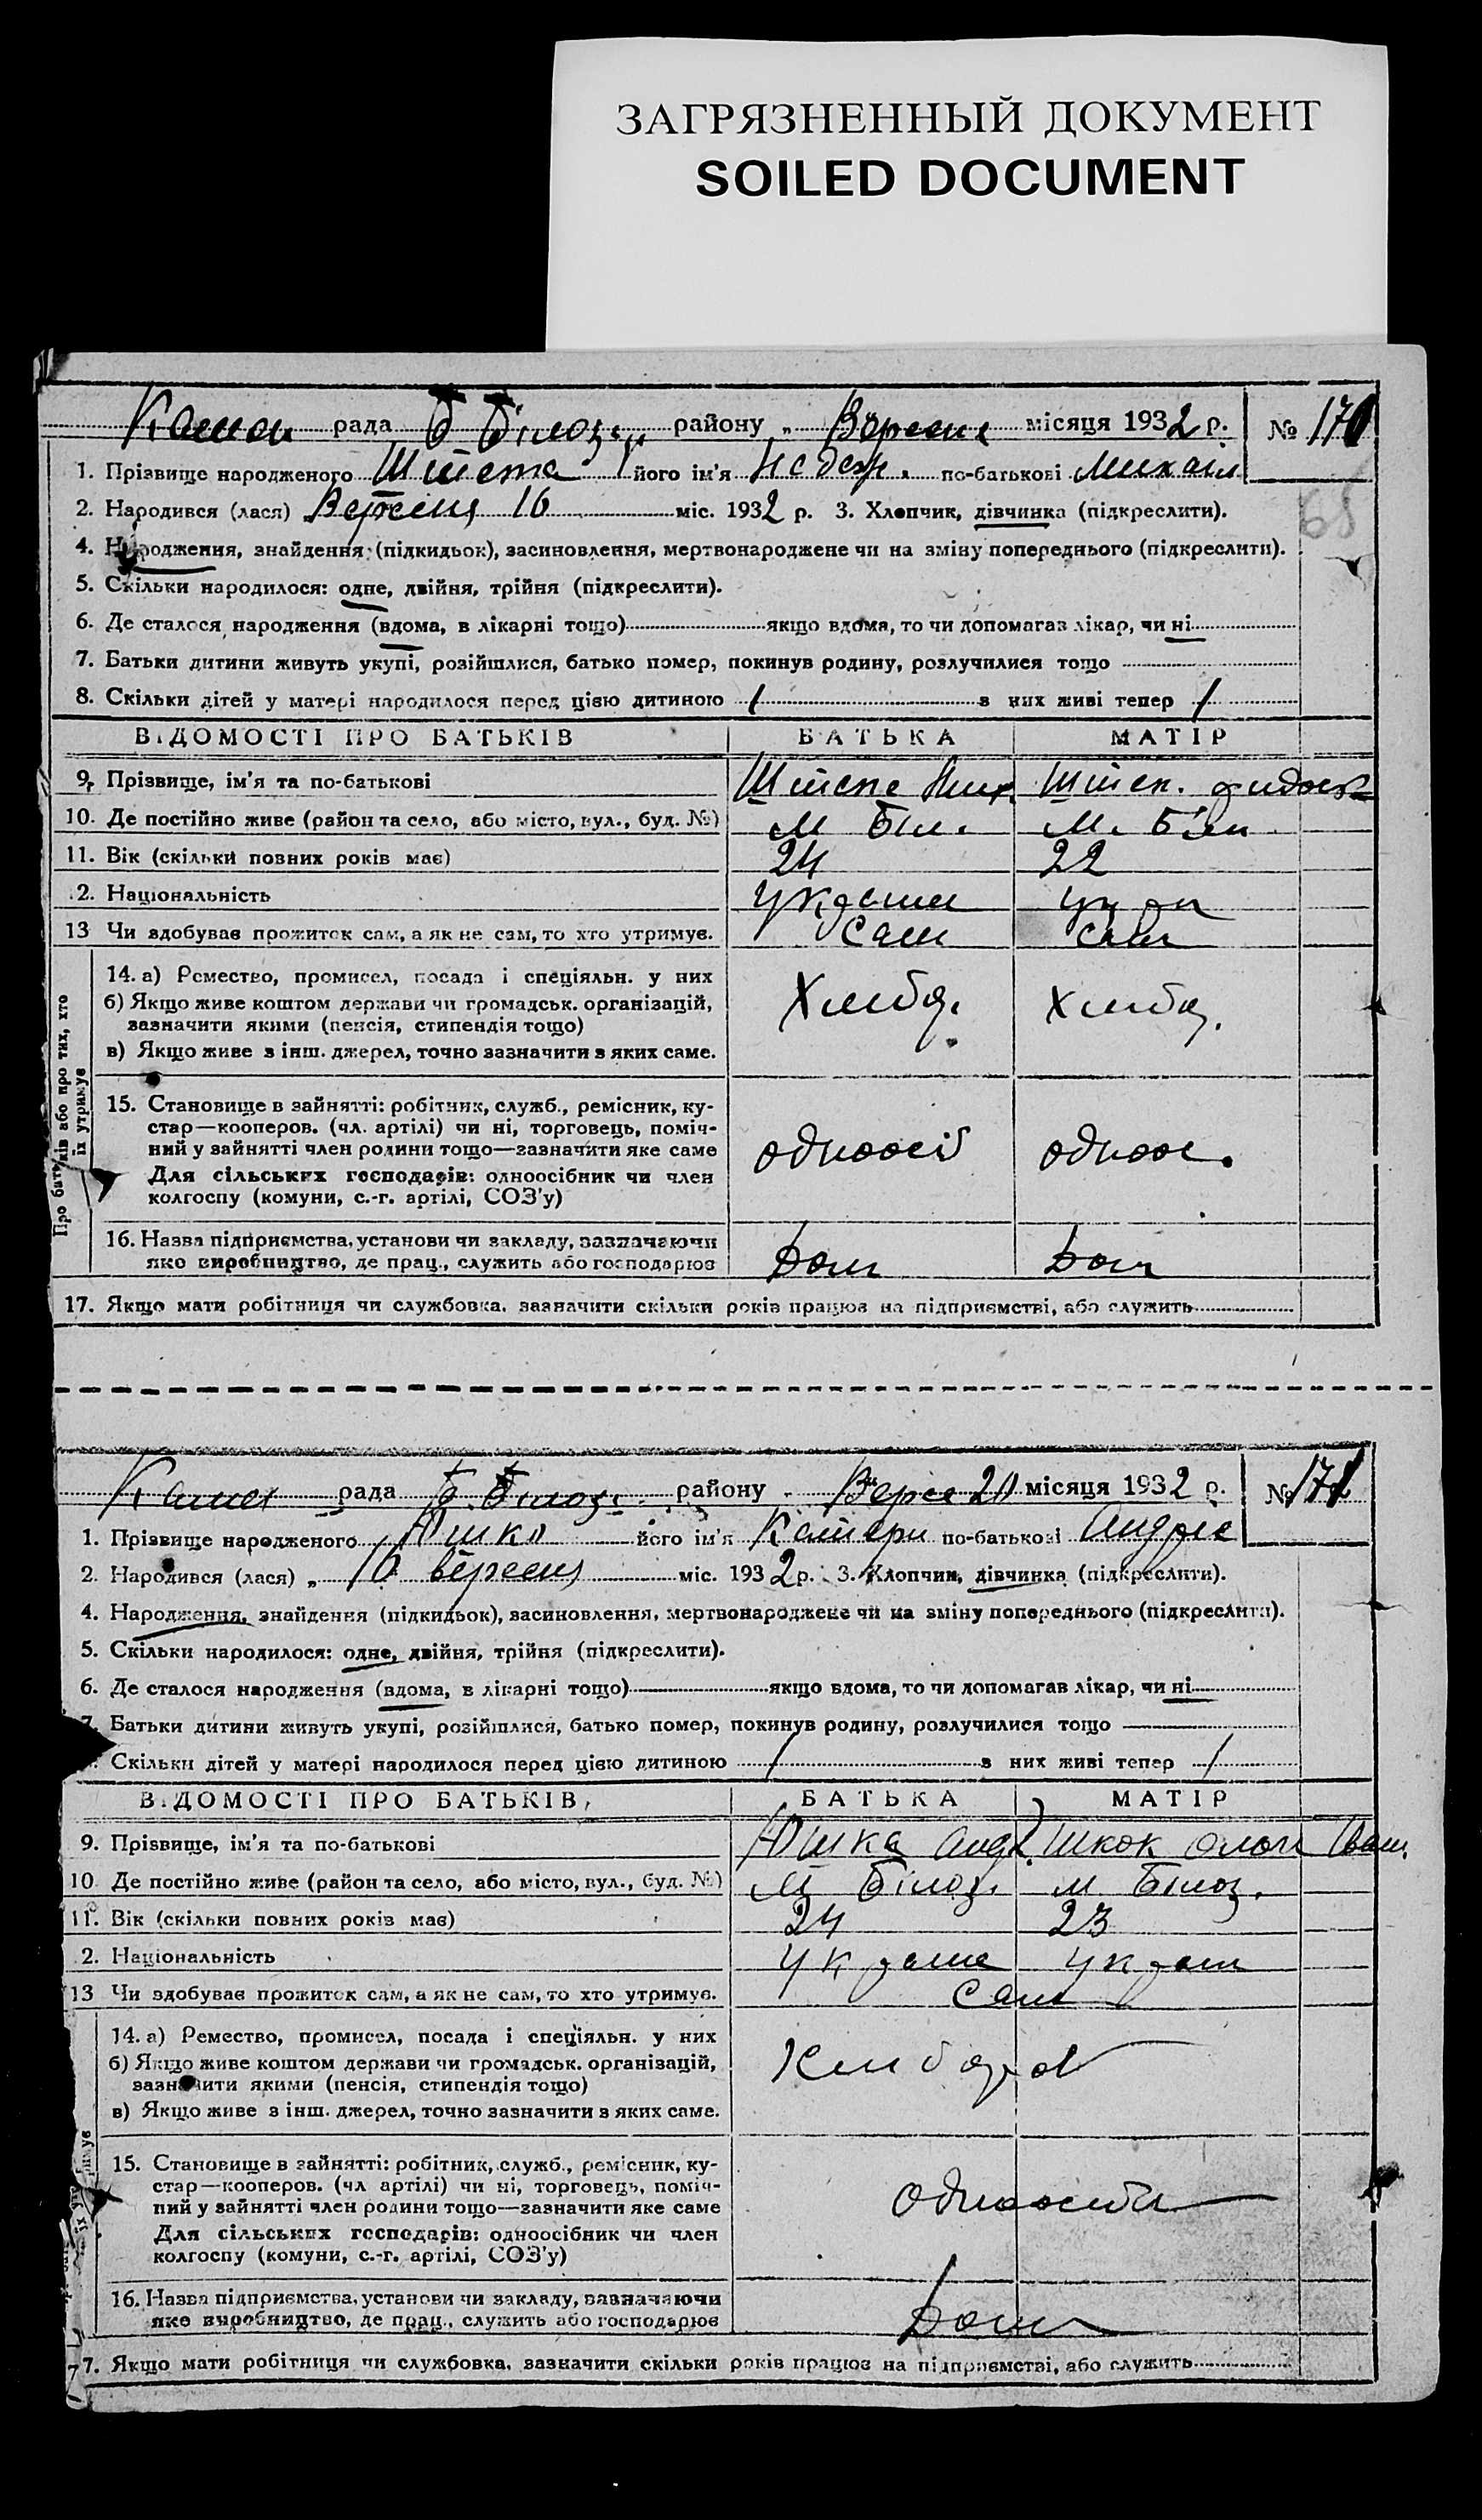 ЗАГРЯЗНЕННЫЙ ДОКУМЕНТ
SOILED DOCUMENT
рада району „ місяця 1932 р. № 170
1. Прізвище народженого його ім'я по-батькові Михаіл
68
2. Народився (лася) Вересня 16 міс. 1932 р. 3. Хлопчик, дівчинка (підкреслити).
4. Народження, знайдення (підкидьок), засиновлення, мертвонароджене чи на зміну попереднього (підкреслити).
5. Скільки народилося: одне, двійня, трійня (підкреслити).
6. Де сталося народження (вдома, в лікарні тощо) якщо вдома, то чи допомагав лікар, чи ні
7. Батьки дитини живуть укупі, розійшлися, батько помер, покинув родину, розлучилися тощо
8. Скільки дітей у матері народилося перед цією дитиною 1 з них живі тепер 1
ВІДОМОСТІ ПРО БАТЬКІВ БАТЬКА МАТІР
9. Прізвище, ім'я та по-батькові
10. Де постійно живе (район та село, або місто, вул., буд. №) М Біл. М.
11. Вік (скільки повних років має) 24 22
2. Національність
13 Чи здобуває прожиток сам, а як не сам, то хто утримує. Сам Сам
Про батьків або про тих, хто їх утримує
14. а) Ремество, промисел, посада і спеціяльн. у них
б) Якщо живе коштом держави чи громадськ. організацій,
зазначити якими (пенсія, стипендія тощо)
в) Якщо живе з інш. джерел, точно зазначити з яких саме.
15. Становище в зайнятті: робітник, служб., ремісник, ку-
стар—кооперов. (чл. артілі) чи ні, торговець, поміч-
ний у зайнятті член родини тощо—зазначити яке саме
Для сільських господарів: одноосібник чи член
колгоспу (комуни, с.-г. артілі, СОЗ'у)
одноосіб одноос.
16. Назва підприємства, установи чи закладу, зазначаючи
яке виробництво, де прац., служить або господарює
Дом Дом
17. Якщо мати робітниця чи службовка, зазначити скільки років працює на підприємстві, або служить
рада району „ місяця 1932 р. № 171
1. Прізвище народженого його ім'я Катери по-батькові Андрє
2. Народився (лася) „ 16 вересня міс. 1932 р. 3. Хлопчик, дівчинка (підкреслити).
4. Народження, знайдення (підкидьок), засиновлення, мертвонароджене чи на зміну попереднього (підкреслити).
5. Скільки народилося: одне, двійня, трійня (підкреслити).
6. Де сталося народження (вдома, в лікарні тощо) якщо вдома, то чи допомагав лікар, чи ні
7. Батьки дитини живуть укупі, розійшлися, батько помер, покинув родину, розлучилися тощо
Скільки дітей у матері народилося перед цією дитиною 1 з них живі тепер 1
ВІДОМОСТІ ПРО БАТЬКІВ БАТЬКА МАТІР
9. Прізвище, ім'я та по-батькові
10 Де постійно живе (район та село, або місто, вул., буд. №) М Білоз. м. Білоз.
11. Вік (скільки повних років має) 24 23
2. Національність
13 Чи здобуває прожиток сам, а як не сам, то хто утримує. Сам
14. а) Ремество, промисел, посада і спеціяльн. у них
б) Якщо живе коштом держави чи громадськ. організацій,
зазначити якими (пенсія, стипендія тощо)
в) Якщо живе з інш. джерел, точно зазначити з яких саме.
15. Становище в зайнятті: робітник, служб., ремісник, ку-
стар—кооперов. (чл артілі) чи ні, торговець, поміч-
ний у зайнятті член родини тощо—зазначити яке саме
Для сільських господарів: одноосібник чи член
колгоспу (комуни, с.-г. артілі, СОЗ'у)
16. Назва підприємства, установи чи закладу, зазначаючи
яке виробництво, де прац., служить або господарює
Дом
7. Якщо мати робітниця чи службовка, зазначити скільки років працює на підприємстві, або служить